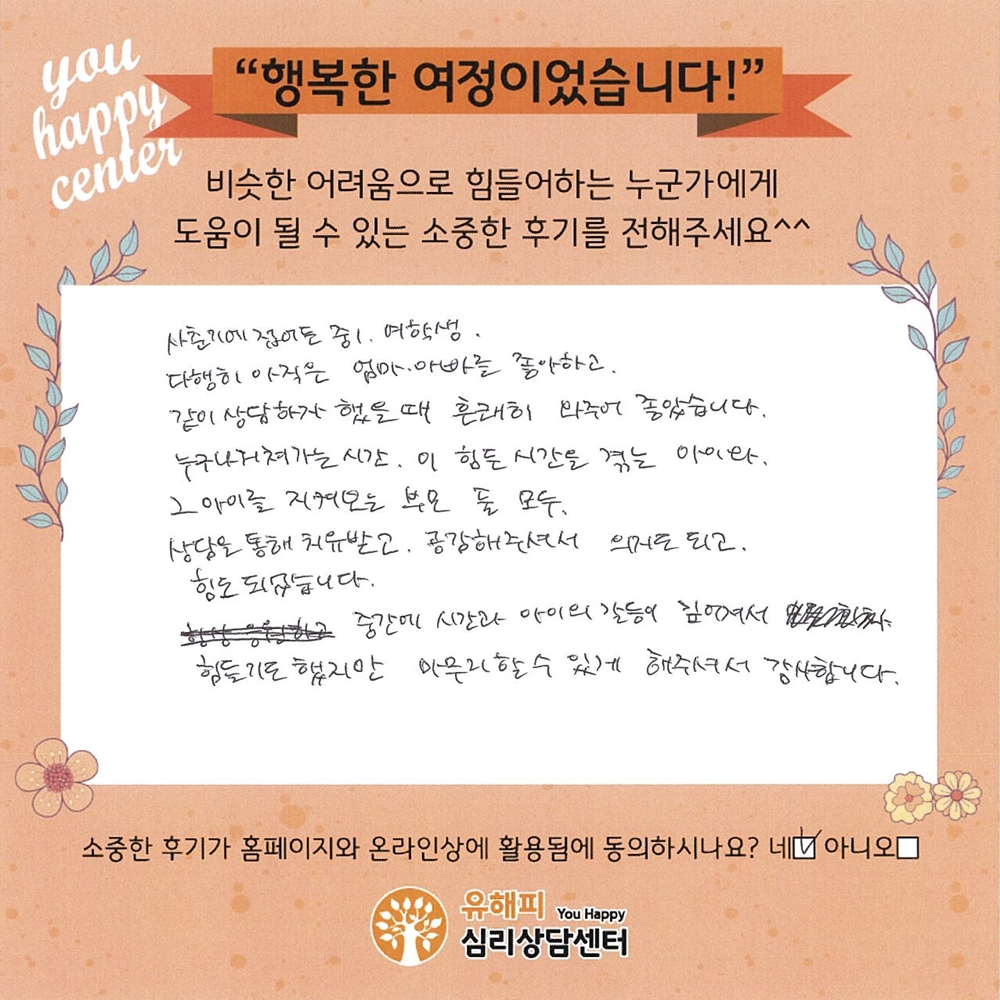 you
happy
center
“행복한 여정이었습니다!”
비슷한 어려움으로 힘들어하는 누군가에게
도움이 될 수 있는 소중한 후기를 전해주세요^^
사춘기에 접어든 중1. 여학생.
다행히 아직은 엄마.아빠를 좋아하고.
같이 상담하자 했을때 흔쾌히 와주어 좋았습니다.
누구나거쳐가는 시간. 이 힘든 시간을 겪는 아이와.
그 아이를 지켜보는 부모 둘 모두.
상담을 통해 치유받고. 공감해주셔서 의지도 되고.
힘도 되었습니다.
중간에 시간과 아이의 갈등이 깊어져서
힘들기도 했지만 마무리할수 있게 해주셔서 감사합니다.
소중한 후기가 홈페이지와 온라인상에 활용됨에 동의하시나요? 네☑ 아니오☐
유해피 You Happy
심리상담센터